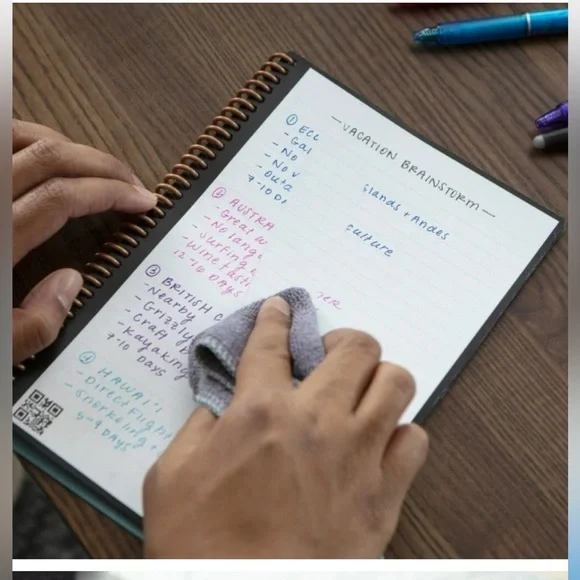 —VACATION BRAINSTORM—
① ECC
- Gal
slands + Andes
- No
- No v
culture
- Outa
7-10 D
② AUSTRA
- Great w
- No lang
- Surfing &
- Wine tasti
TER
12-16 DAYS
③ BRITISH C
- Nearby
- Grizzly
- Craft
- Kayaking
7-10 DAYS
④ HAWAI'I
- Direct Flight
- Snorkeling +
8-9 DAYS